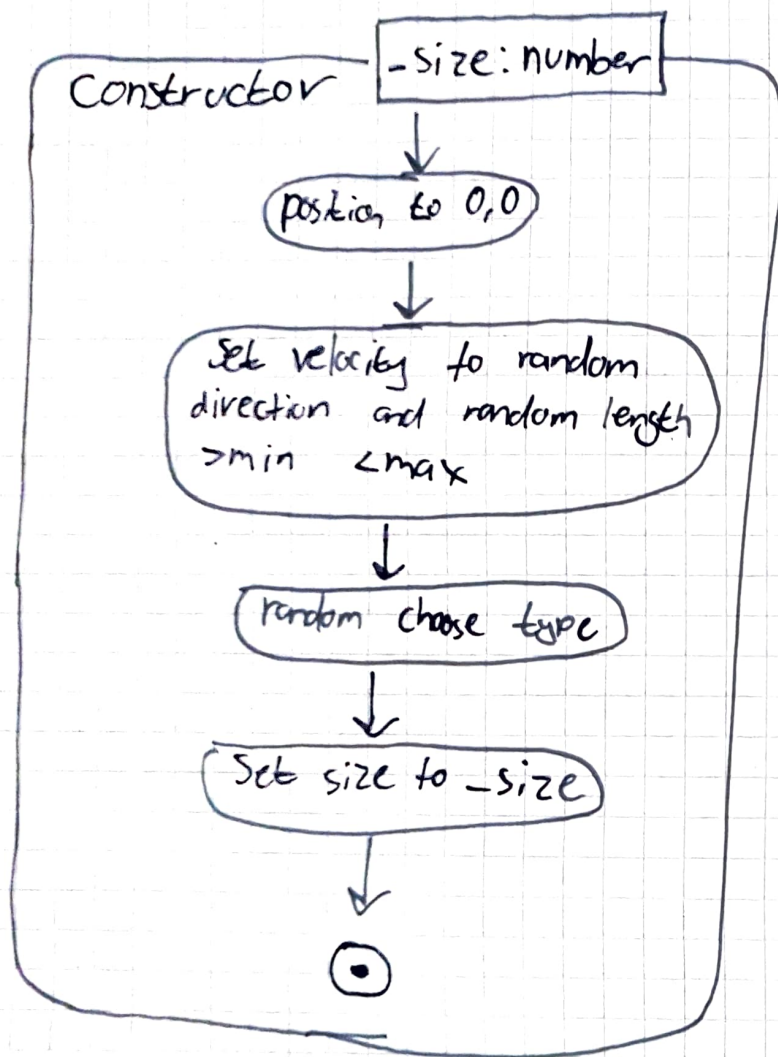 Constructor
_size: number
position to 0,0
Set velocity to random
direction and random length
>min <max
random choose type
Set size to _size